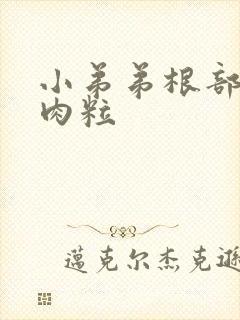 小弟弟根部
肉粒
邁克尔杰克遜